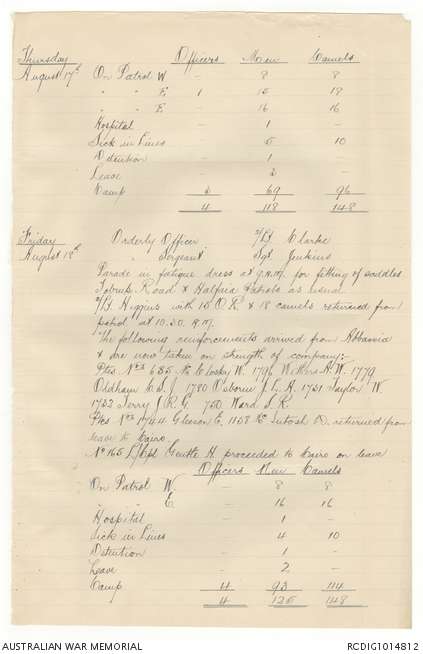 Officers Men Camels
Thursday
August 17th On Patrol W - 8 8
" " E 1 15 18
" " E. - 16 16
Hospital - 1 -
Sick in Lines - 5 10
Detention - 1
Leave - 3
Camp 3 69 96
4 118 148
Friday
August 18th Orderly Officer 2/Lt Clarke
" Sergeant Sgt Jenkins
Parade in fatigue dress at 9 A.M. for fitting of saddles
Road & Halfia Patrols as usual
2/Lt Higgins with 15 O.Rs & 18 camels returned from
patrol at 10.30 A.M.
The following reinforcements arrived from Abbassia
& are now taken on strength of company:-
Ptes Nos 685 Mc Closky W. 1796 A.W. 1779
Oldham C.S.J. 1780 Osborne J.L.H. 1751 Taylor W.
1752 Terry J.R.G. 750 Ward S.R.
Ptes Nos 1744 Gleeson C. 1108 McIntosh D. returned from
leave to Cairo.
No 165 L/Cpl Gentle H. proceeded to Cairo on leave
Officers Men Camels
On Patrol W - 8 8
" E - 16 16
Hospital - 1 -
Sick in Lines - 4 10
Detention - 1 -
Leave - 2 -
Camp 4 93 114
4 125 148
AUSTRALIAN WAR MEMORIAL
RCDIG1014812